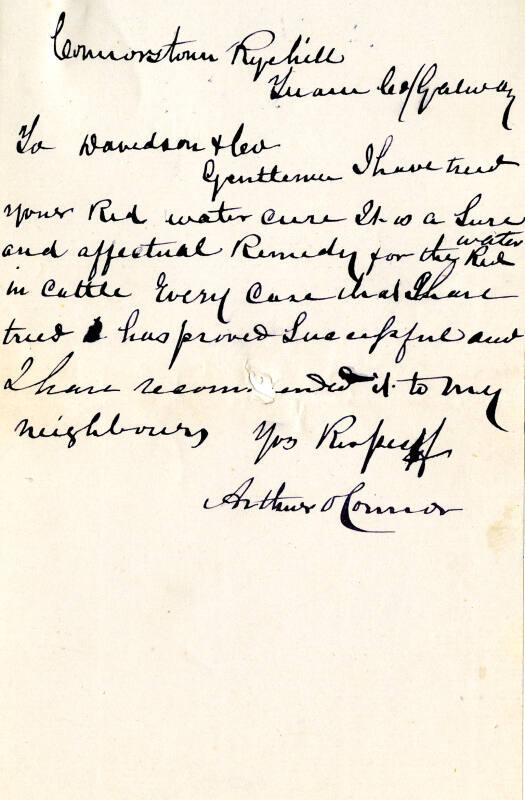 Connorstown Ryehill
Tuam Co/Galway
To Davidson & Co
Gentlemen I have tried
your Red water cure It is a Sure
and affectual Remedy for the Red water
in cattle Every Case that I have
tried has proved Successful and
I have recom ended it to my
neighbours Yos Respectf
Arthur O Connor